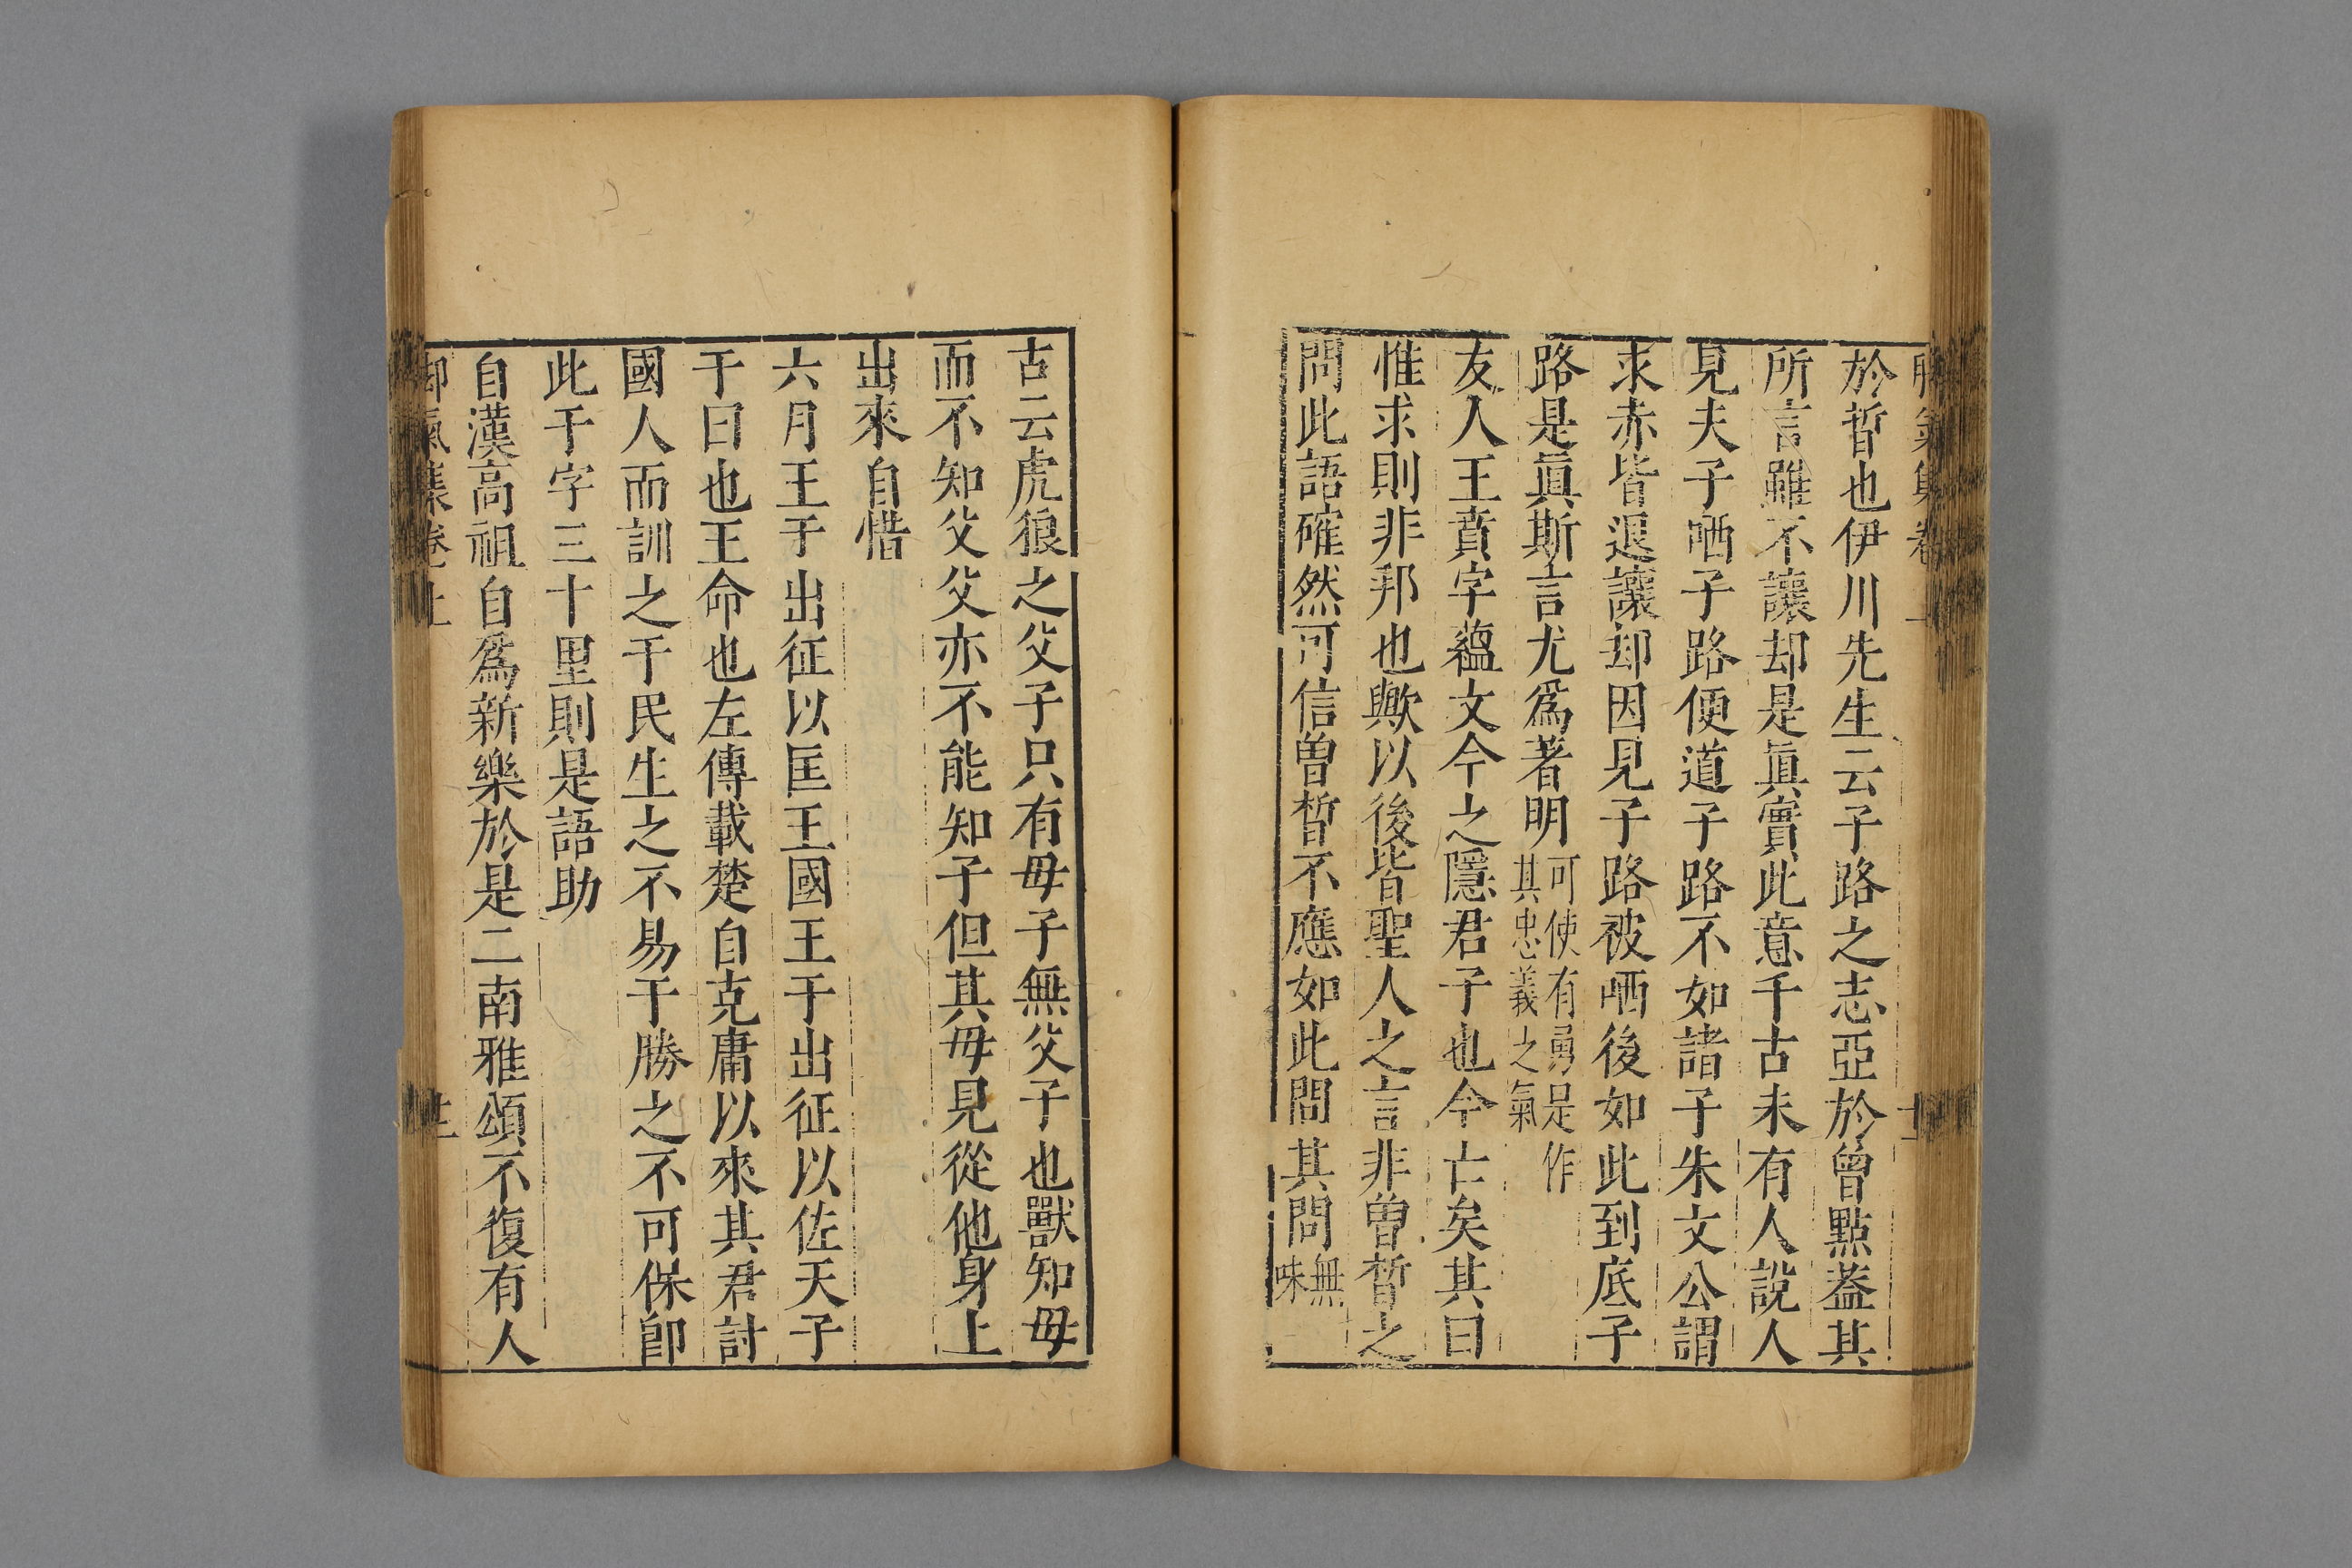 於晳也伊川先生云子路之志亞於曾點葢其
所言雖不讓却是眞實此意千古未有人說人
見夫子哂子路便道子路不如諸子朱文公謂
求赤皆退讓却因見子路被哂後如此到底子
路是眞斯言尤爲著明可使有勇足作其忠義之氣
友人王賁字蘊文今之隱君子也今亡矣其曰
惟求則非邦也歟以後皆聖人之言非曽晳之
問此語確然可信曽晳不應如此問其問無味
古云虎狼之父子只有母子無父子也獸知母
而不知父父亦不能知子但其母見從他身上
出來自惜
六月王于出征以匡王國王于出征以佐天子
于曰也王命也左傳載楚自克庸以來其君討
國人而訓之于民生之不易于勝之不可保卽
此于字三十里則是語助
自漢高祖自爲新樂於是二南雅頌不復有人
氣集卷上